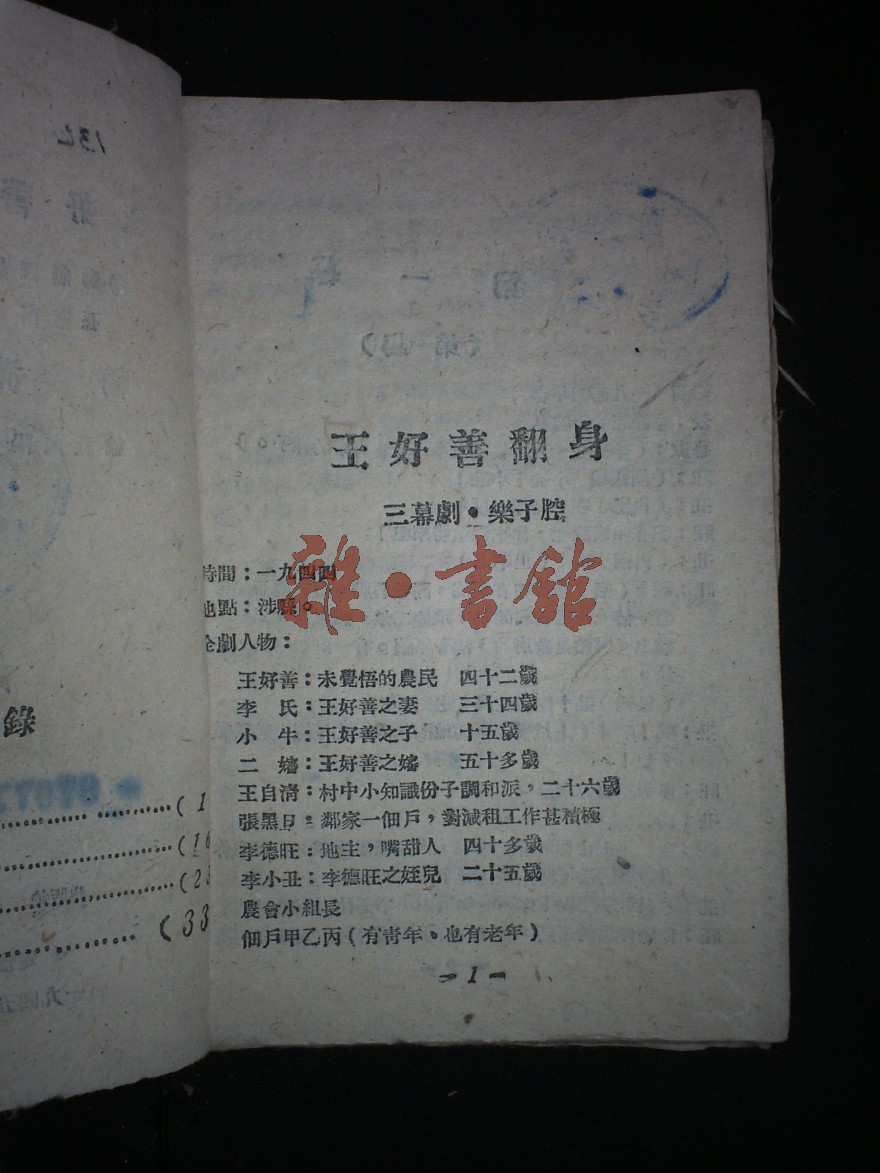 134
錄
(1
(16
(2
(33
王好善翻身
三幕劇・樂子腔
時間：一九四四
地點：涉縣。
全劇人物：
王好善：未覺悟的農民 四十二歲
李 氏：王好善之妻 三十四歲
小 牛：王好善之子 十五歲
二 嬸：王好善之嬸 五十多歲
王自清：村中小知識份子調和派，二十六歲
張黑旦：鄰家一佃戶，對減租工作甚積極
李德旺：地主，嘴甜人 四十多歲
李小丑：李德旺之姪兒 二十五歲
農會小組長
佃戶甲乙丙（有青年。也有老年）
-1-
雜・書館